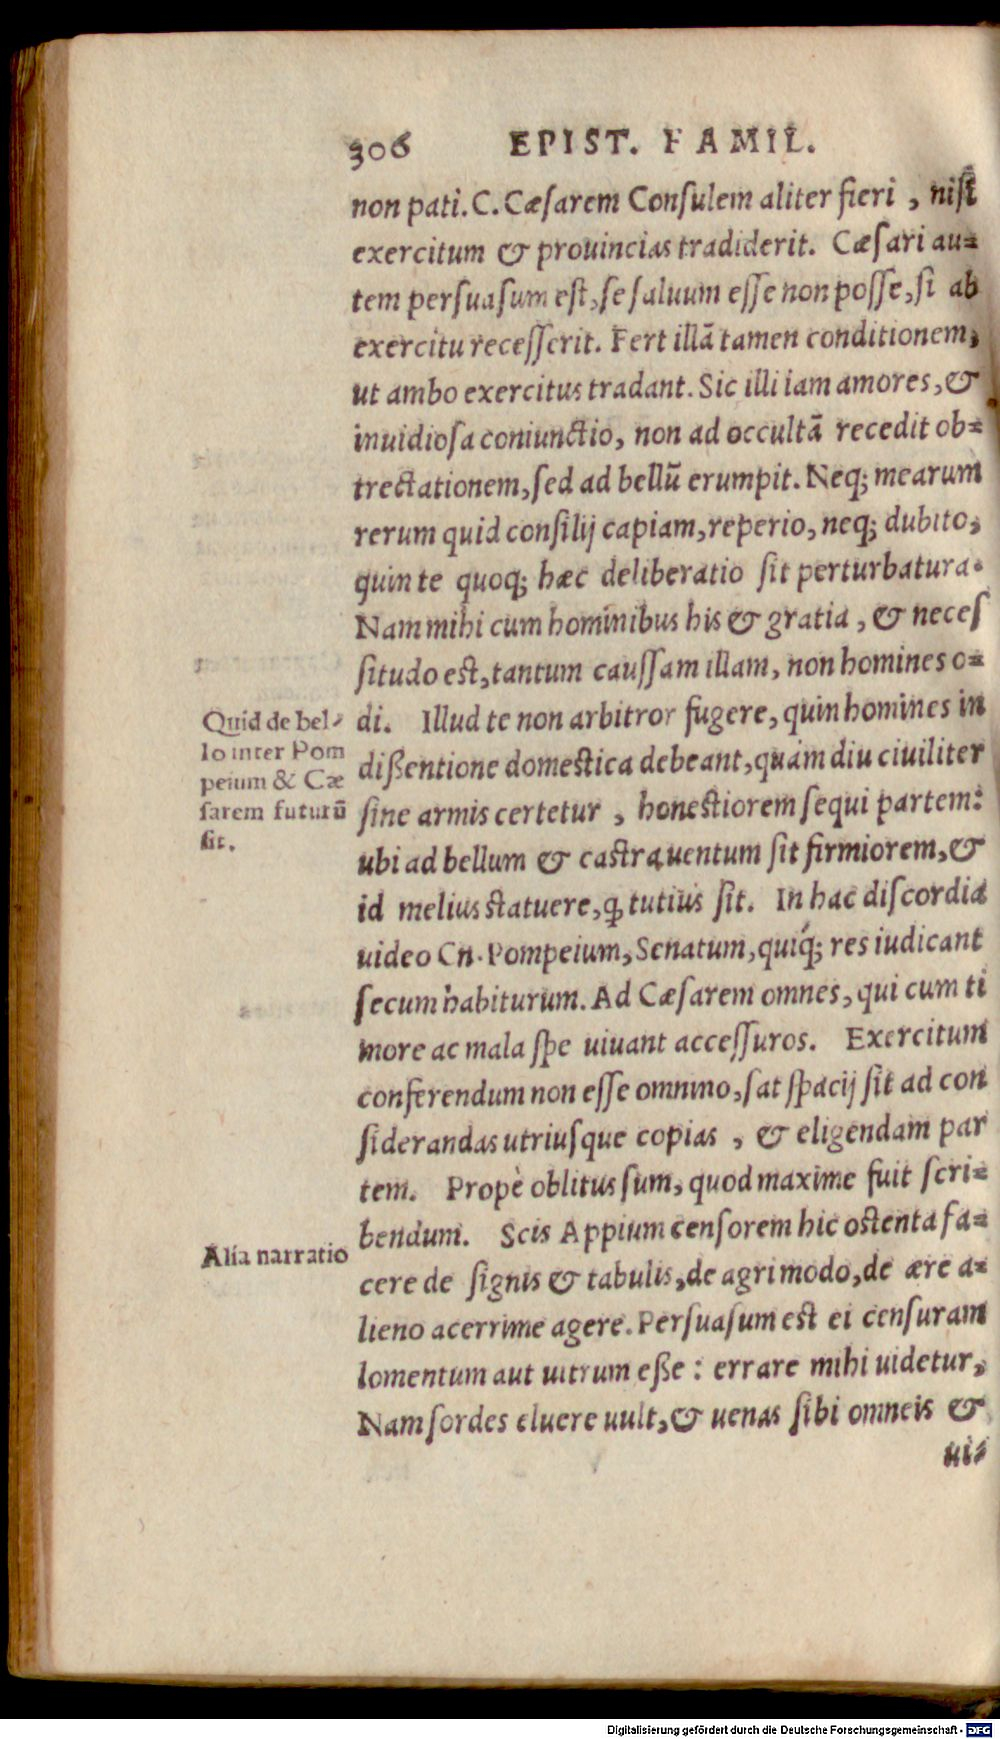 306 EPIST. FAMIL.
non pati. C. Cæſarem Conſulem aliter fieri , niſi
exercitum & prouincias tradiderit. Cæſari au=
tem perſuaſum eſt, ſe ſaluum eſſe non poſſe, ſi ab
exercitu receſſerit. Fert illā tamen conditionem,
ut ambo exercitus tradant. Sic illi iam amores, &
inuidioſa coniunctio, non ad occultā recedit ob=
trectationem, ſed ad bellū erumpit. Neq; mearum
rerum quid conſilij capiam, reperio, neq; dubito,
quin te quoq; hæc deliberatio ſit perturbatura.
Nam mihi cum hominibus his & gratia , & neceſ
ſitudo eſt, tantum cauſſam illam, non homines o=
di. Illud te non arbitror fugere, quin homines in
dißentione domeſtica debeant, quàm diu ciuiliter
ſine armis certetur , honeſtiorem ſequi partem:
ubi ad bellum & caſtra uentum ſit firmiorem, &
id melius ſtatuere, ꝙ tutius ſit. In hac diſcordia
uideo Cn. Pompeium, Senatum, quíq; res iudicant
ſecum habiturum. Ad Cæſarem omnes, qui cum ti
more ac mala ſpe uiuant acceſſuros. Exercitum
conferendum non eſſe omnino, ſat ſpacij ſit ad con
ſiderandas utriuſque copias , & eligendam par
tem. Propè oblitus ſum, quod maxime fuit ſcri=
bendum. Scis Appium cenſorem hic oſtenta fa=
cere de ſignis & tabulis, de agri modo, de ære a=
lieno acerrime agere. Perſuaſum eſt ei cenſuram
lomentum aut uitrum eße : errare mihi uidetur,
Nam ſordes eluere uult, & uenas ſibi omneis &
ui=
Quid de bel=
lo inter Pom
peium & Cæ
ſarem futurū
ſit.
Alia narratio
Digitalisierung gefördert durch die Deutsche Forschungsgemeinschaft - DFG